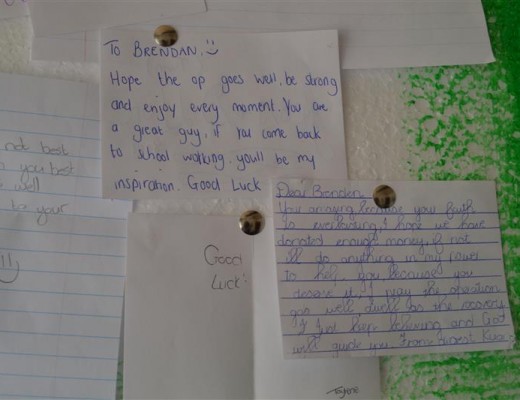 To BRENDAN, :)
Hope the op goes well, be strong
and enjoy every moment. You are
a great guy, if you come back
to school walking. youll be my
inspiration. Good Luck
not best
you best
well
to your
Good
Luck!
Dear Brendan,
You amazing because your faith
is everlasting, I hope we have
donated enough money, if not
ill do anything in my power
to help you because you
deserve it, I pray the operation
gos well aswell as the recovery
just keep believing and God
will guide you. From